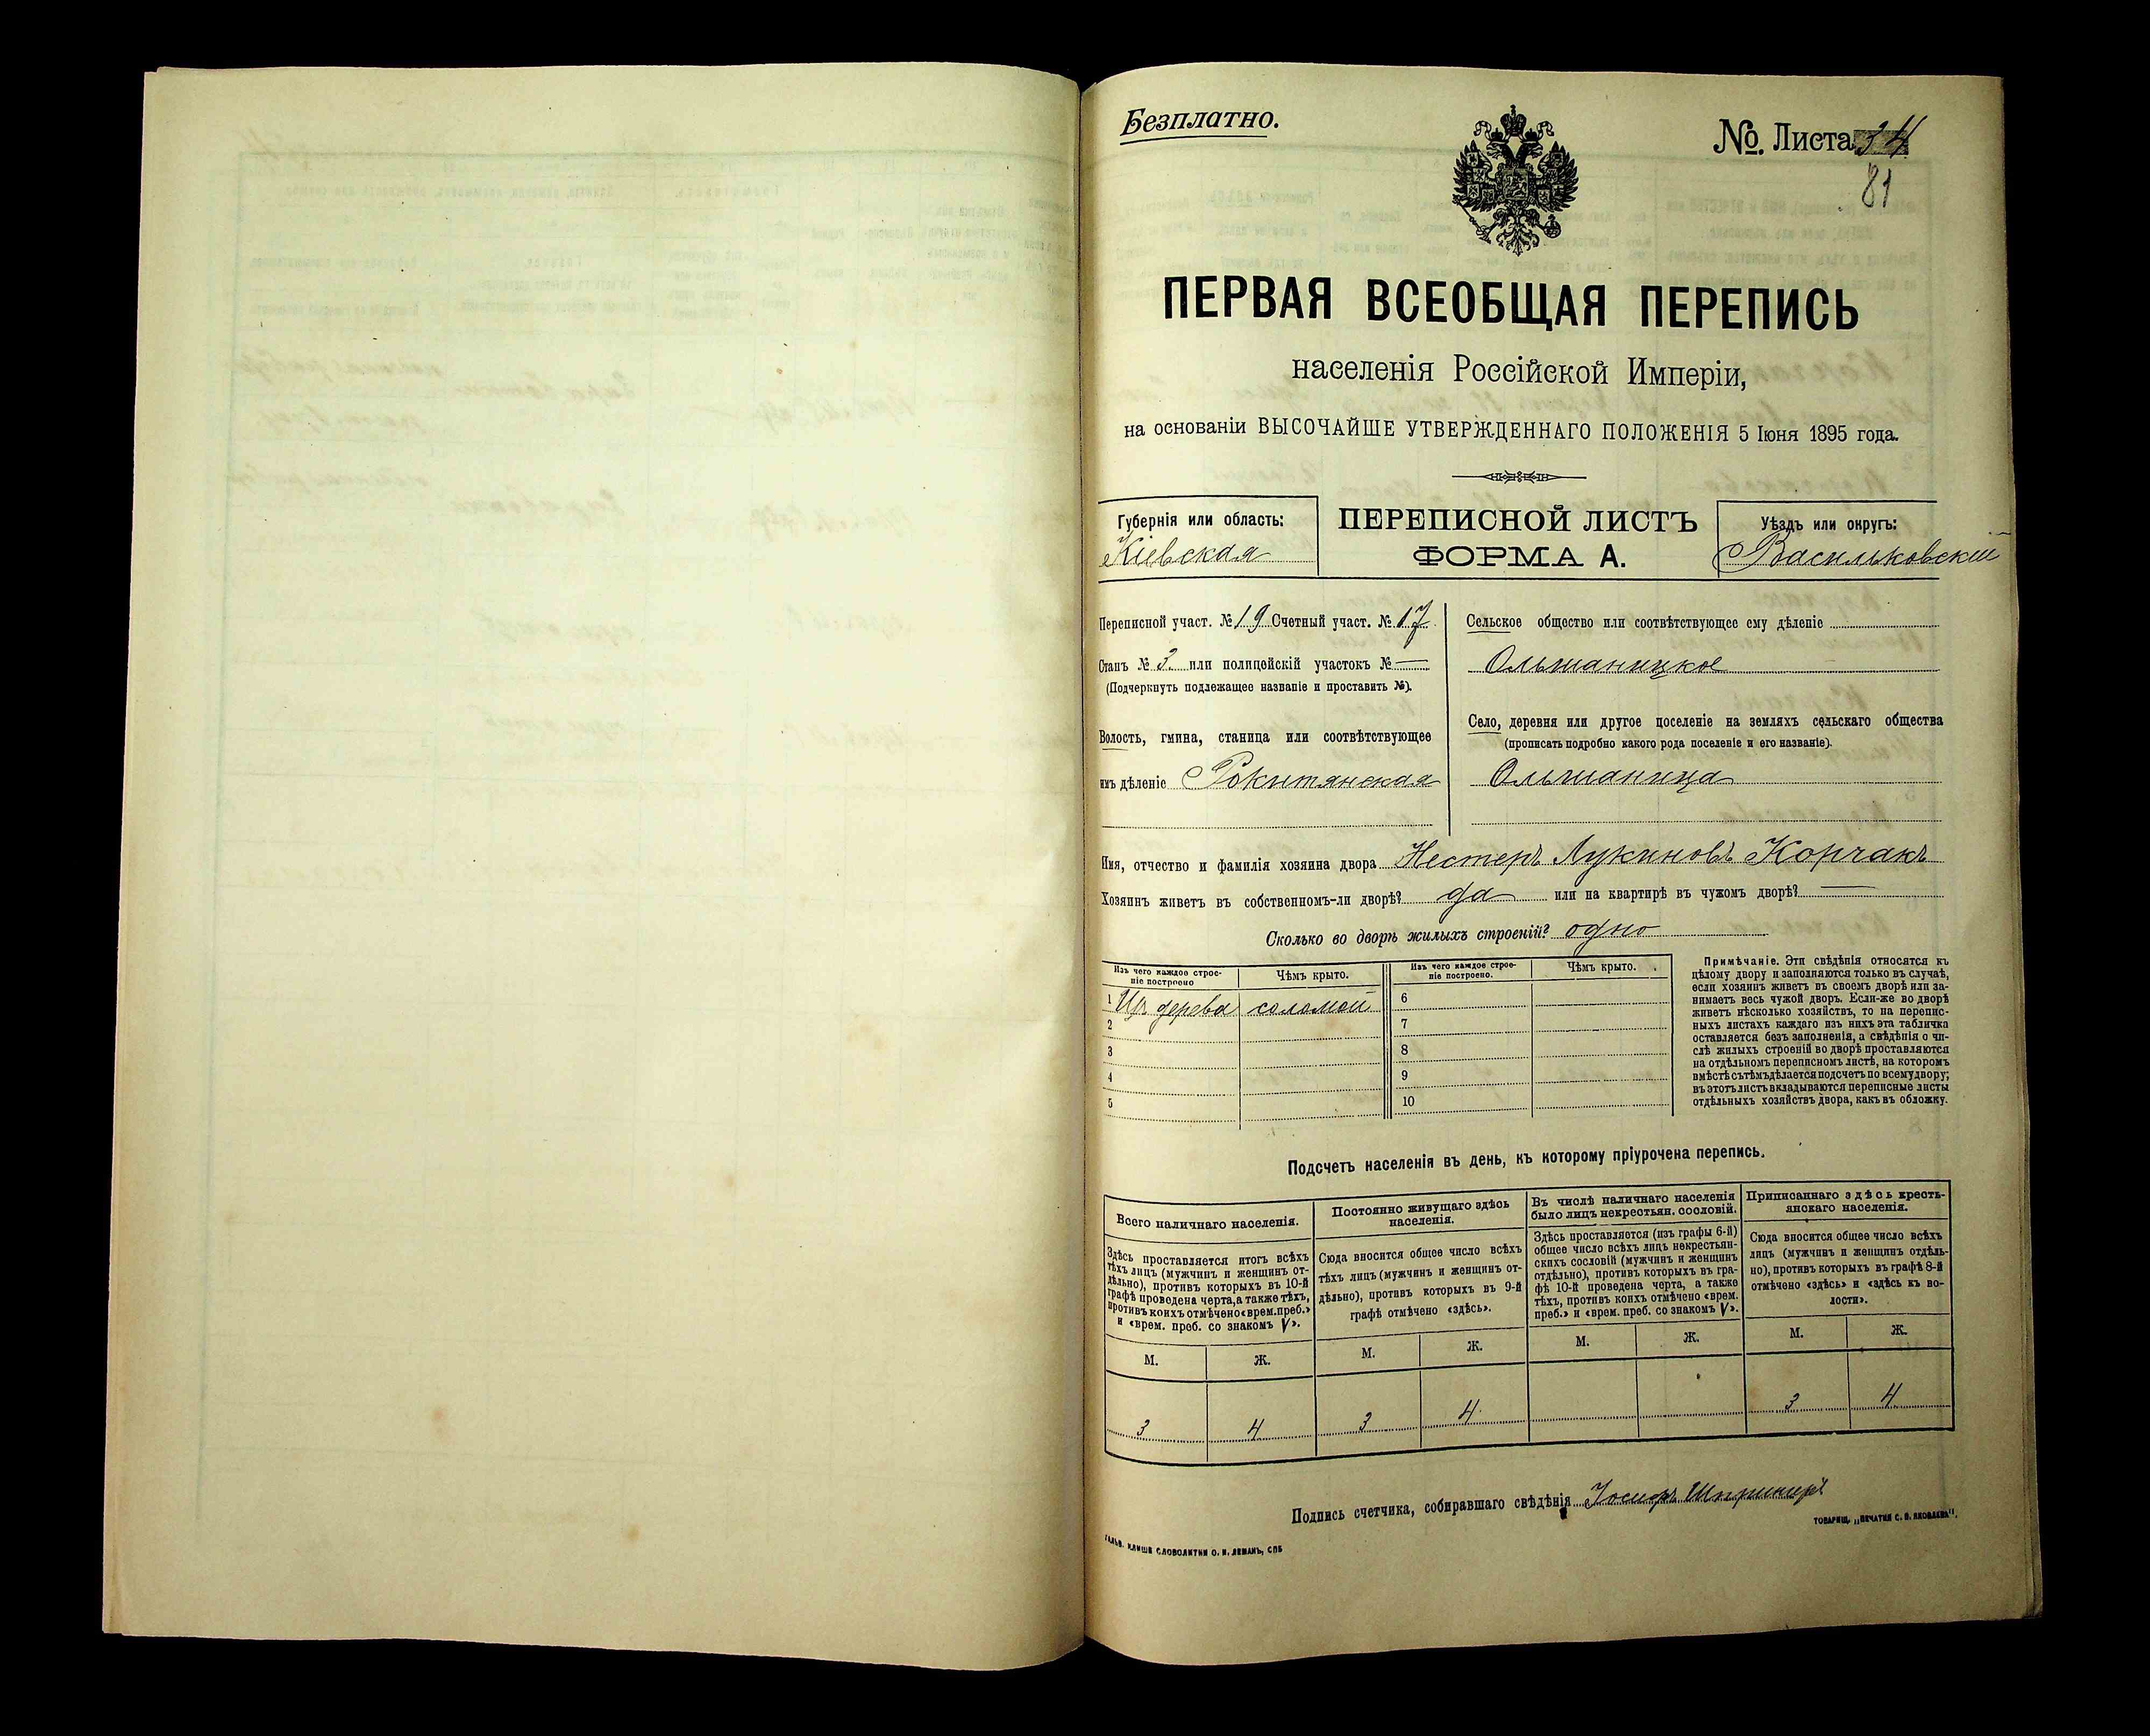 Безплатно.
№. Листа 34
81
ПЕРВАЯ ВСЕОБЩАЯ ПЕРЕПИСЬ
населенія Россійской Имперіи,
на основаніи ВЫСОЧАЙШЕ УТВЕРЖДЕННАГО ПОЛОЖЕНІЯ 5 Іюня 1895 года.
Губернія или область:
Кіевская
ПЕРЕПИСНОЙ ЛИСТЪ
ФОРМА А.
Уѣздъ или округъ:
Васильковскій
Переписной участ. № 19 Счетный участ. № 17
Станъ № 3 или полицейскій участокъ № —
(Подчеркнуть подлежащее названіе и проставить №).
Волость, гмина, станица или соотвѣтствующее
имъ дѣленіе Рокитянская
Сельское общество или соотвѣтствующее ему дѣленіе
Ольшаницкое
Село, деревня или другое поселеніе на земляхъ сельскаго общества
(прописать подробно какого рода поселеніе и его названіе).
Ольшаница
Имя, отчество и фамилія хозяина двора Нестеръ Лукиновъ Корчакъ
Хозяинъ живетъ въ собственномъ-ли дворѣ? да или на квартирѣ въ чужомъ дворѣ? —
Сколько во дворѣ жилыхъ строеній? одно
Изъ чего каждое строе-
ніе построено
Чѣмъ крыто.
Изъ чего каждое строе-
ніе построено.
Чѣмъ крыто.
1 Изъ дерева соломой 6
2 7
3 8
4 9
5 10
Примѣчаніе. Эти свѣдѣнія относятся къ
цѣлому двору и заполняются только въ случаѣ,
если хозяинъ живетъ въ своемъ дворѣ или за-
нимаетъ весь чужой дворъ. Если-же во дворѣ
живетъ нѣсколько хозяйствъ, то на перепис-
ныхъ листахъ каждаго изъ нихъ эта табличка
оставляется безъ заполненія, а свѣдѣнія о чи-
слѣ жилыхъ строеній во дворѣ проставляются
на отдѣльномъ переписномъ листѣ, на которомъ
вмѣстѣ съ тѣмъ дѣлается подсчетъ по всему двору;
въ этотъ листъ вкладываются переписные листы
отдѣльныхъ хозяйствъ двора, какъ въ обложку.
Подсчетъ населенія въ день, къ которому пріурочена перепись.
Всего наличнаго населенія.
Здѣсь проставляется итогъ всѣхъ
тѣхъ лицъ (мужчинъ и женщинъ от-
дѣльно), противъ которыхъ въ 10-й
графѣ проведена черта, а также тѣхъ,
противъ коихъ отмѣчено «врем. преб.»
и «врем. преб. со знакомъ V».
Постоянно живущаго здѣсь
населенія.
Сюда вносится общее число всѣхъ
тѣхъ лицъ (мужчинъ и женщинъ от-
дѣльно), противъ которыхъ въ 9-й
графѣ отмѣчено «здѣсь».
Въ числѣ наличнаго населенія
было лицъ некрестьян. сословій.
Здѣсь проставляется (изъ графы 6-й)
общее число всѣхъ лицъ некрестьян-
скихъ сословій (мужчинъ и женщинъ
отдѣльно), противъ которыхъ въ гра-
фѣ 10-й проведена черта, а также
тѣхъ, противъ коихъ отмѣчено «врем.
преб.» и «врем. преб. со знакомъ V».
Приписаннаго здѣсь кресть-
янскаго населенія.
Сюда вносится общее число всѣхъ
лицъ (мужчинъ и женщинъ отдѣль-
но), противъ которыхъ въ графѣ 8-й
отмѣчено «здѣсь» и «здѣсь къ во-
лости».
М. Ж. М. Ж. М. Ж. М. Ж.
3 4 3 4 3 4
Подпись счетчика, собиравшаго свѣдѣнія Іосифъ
ТОВАРИЩ. „ПЕЧАТНЯ С. П. ЯКОВЛЕВА".
ГАЛЬВ. КЛИШЕ СЛОВОЛИТНИ О. И. ЛЕМАНЪ, СПБ